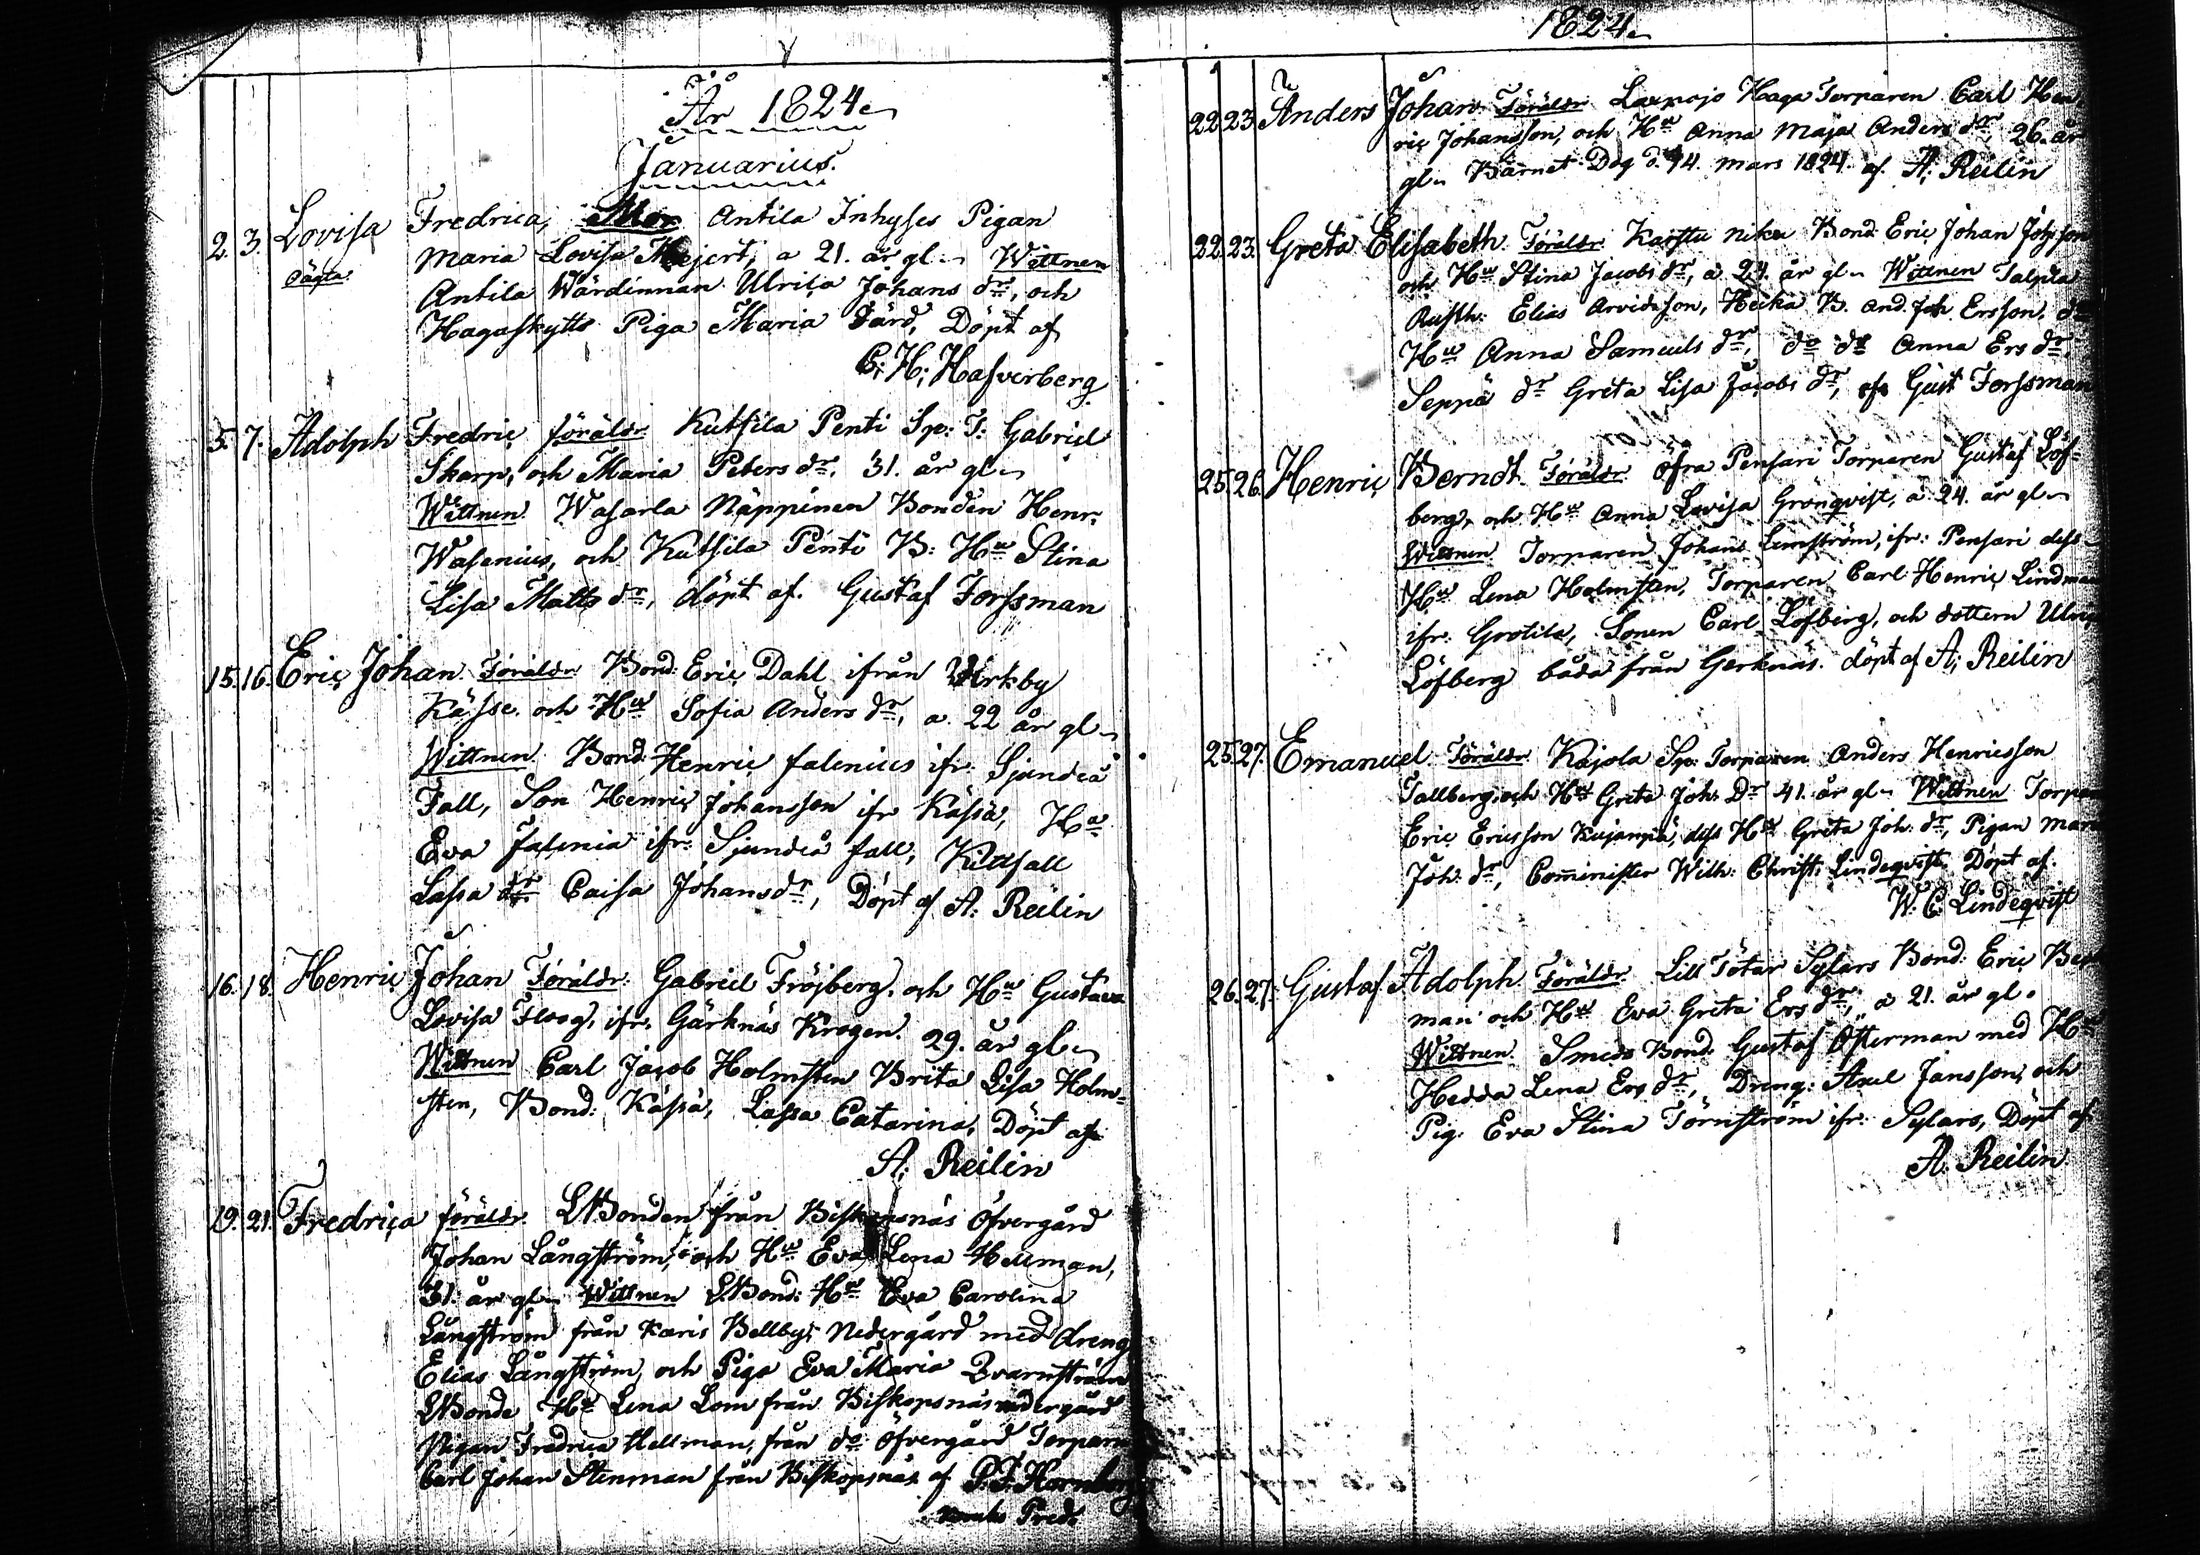 År 1824
Januarius.
2. 3. Lovisa Fredrica, Mor Antila Inhyses Pigan
oägta Maria Lovisa Mejert, a 21. år gl. Wittnen
Antila Wärdinnan Ulrica Johans dr, och
Hagaskytts Piga Maria Bärd, Döpt af
C: H: Hasverberg
5. 7. Adolph Fredric föräldr Kutsila Penti Sp: T: Gabriel
Skarp, och Maria Peters dr, 31. år gl
Wittnen Wasarla Näppinen Bonden Henr.
Wasenius, och Kutsila Penti B: Hu Stina
Lisa Matts dr, döpt af. Gustaf Forssman
15. 16. Eric Johan Föräldr Bond: Eric Dahl ifrån Virkby
Kässe och Hu Sofia Anders dr, a 22 år gl
Wittnen Bond: Henric falenius ifr. Sjundeå
Fall, Son Henric Johansson ifr Kässä, Hu
Eva Falenia ifr: Sjundeå fall, Kittfall
Lassa dr Caisa Johansdr, Döpt af A: Reilin
16. 18. Henric Johan Föräldr: Gabriel Fröjberg, och Hu Gustava
Lovisa Floog, ifr. Gärknäs Krogen. 29. år gl
Wittnen Carl Jacob Holmsten Brita Lisa Holm=
sten, Bond: Kässä, Lassa Catarina, Döpt af
A: Reilin
19. 21. Fredrica föräldr LBonden från Biskopsnäs Öfvergård
Johan Långström, och Hu Eva Lena Hellman,
31. år gl Wittnen LBond: Hu Eva Carolina
Långström från Karis Bellby, Nedergård med dreng
Elias Långström, och Piga Eva Maria Qvarnström
LBonde Hu Lena Lom från Biskopsnäs nedergård
Pigan Fredrica Hellman, från do Öfvergård Torpare
Carl Johan Stenman från Biskopsnäs af P. F. Hornborg
Pred:
1824
22. 23. Anders Johan Föräldr Laxpojo Haga Torparen Carl Hen
ric Johansson, och Hu Anna Maja Anders dr, 26. år
gl Barnet Dog d. 14. Mars 1824. af A: Reilin
22. 23. Greta Elisabeth Föräldr Karstu niku Bond Eric Johan Johsson
och Hu Stina Jacobs dr, a 24. år gl Wittnen Talpela
Rusth: Elias Arvidsson, Heika B. And. Joh. Ersson, do
Hu Anna Samuels dr, do dr Anna Ers dr,
Seppä dr Greta Lisa Jacobs dr, af Gust Forssman
25. 26. Henric Berndt Föräldr Öfra Pensari Torparen Gustaf Löf=
berg, och Hu Anna Lovisa Grönqvist, a 24. år gl
Wittnen Torparen Johans ifr: Pensari dess
Hu Lena Holmsten, Torparen Carl Henric Lindman
ifr: Grotila, Sonen Carl Löfberg, och dottern Ulrica
Löfberg båda från Gerknäs. döpt af A: Reilin
25. 27. Emanuel Föräldr Kajola Sp: Torparen Anders Henricsson
Tallberg och Hu Greta Joh: Dr 41. år gl Wittnen Torpare
Eric Ericsson Kujanpä, dess Hu Greta Joh: dr, Pigan Maria
Joh: dr, Cominister Wilh: Christ: Lindeqvist. Döpt af.
W. C. Lindeqvist
26. 27. Gustaf Adolph Föräldr Lill Tötar Sylars Bond: Eric Berg
man och Hu Eva Greta Ers dr, a 21. år gl.
Wittnen Smeds Bond. Gustaf Österman med Hu
Hedda Lena Ers dr, Dreng: Axel Jansson, och
Pig: Eva Stina Törnström ifr: Sylars, Döpt af
A: Reilin